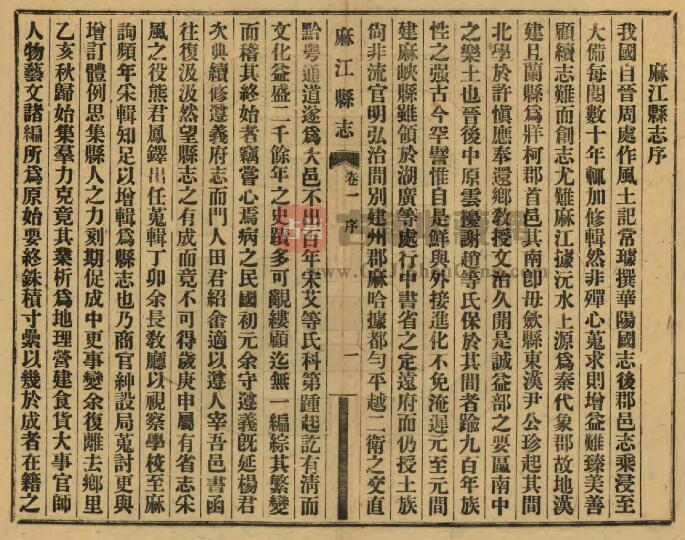 麻江縣志序
我國自晉周處作風土記常璩撰華陽國志後郡邑志乘浸至
大備每閱數十年輒加修輯然非殫心蒐求則增益難臻美善
顧續志難而創志尤難麻江據沅水上源爲秦代象郡故地漢
建且蘭縣爲牂柯郡首邑其南卽毋斂縣東漢尹公珍起其間
北學於許愼應奉還鄉教授文治久開是誠益部之要區南中
之樂土也晉後中原雲擾謝趙等氏保於其間者踰九百年族
性之强古今罕譬惟自是鮮與外接進化不免淹遲元至元間
建麻峽縣雖領於湖廣等處行中書省之定遠府而仍授土族
尙非流官明弘治間別建州郡麻哈據都勻平越二衞之交直
麻江縣志
卷一 序
一
黔粤通道遂爲大邑不出百年宋艾等氏科第踵起訖有淸而
文化益盛二千餘年之史蹟多可覼縷顧迄無一編綜其繁變
而稽其終始者竊嘗心焉病之民國初元余守遵義旣延楊君
次典續修遵義府志而門人田君紹畬適以遵人宰吾邑書函
往復汲汲然望縣志之有成而竟不可得歲庚申屬有省志采
風之役熊君鳳鐸出任蒐輯丁卯余長敎廳以視察學校至麻
詢頻年采輯知足以增輯爲縣志也乃商官紳設局蒐討更與
增訂體例思集縣人之力刻期促成中更事變余復離去鄉里
乙亥秋歸始集羣力克竟其業析爲地理營建食貨大事官師
人物藝文諸編所爲原始要終銖積寸絫以幾於成者在籍之